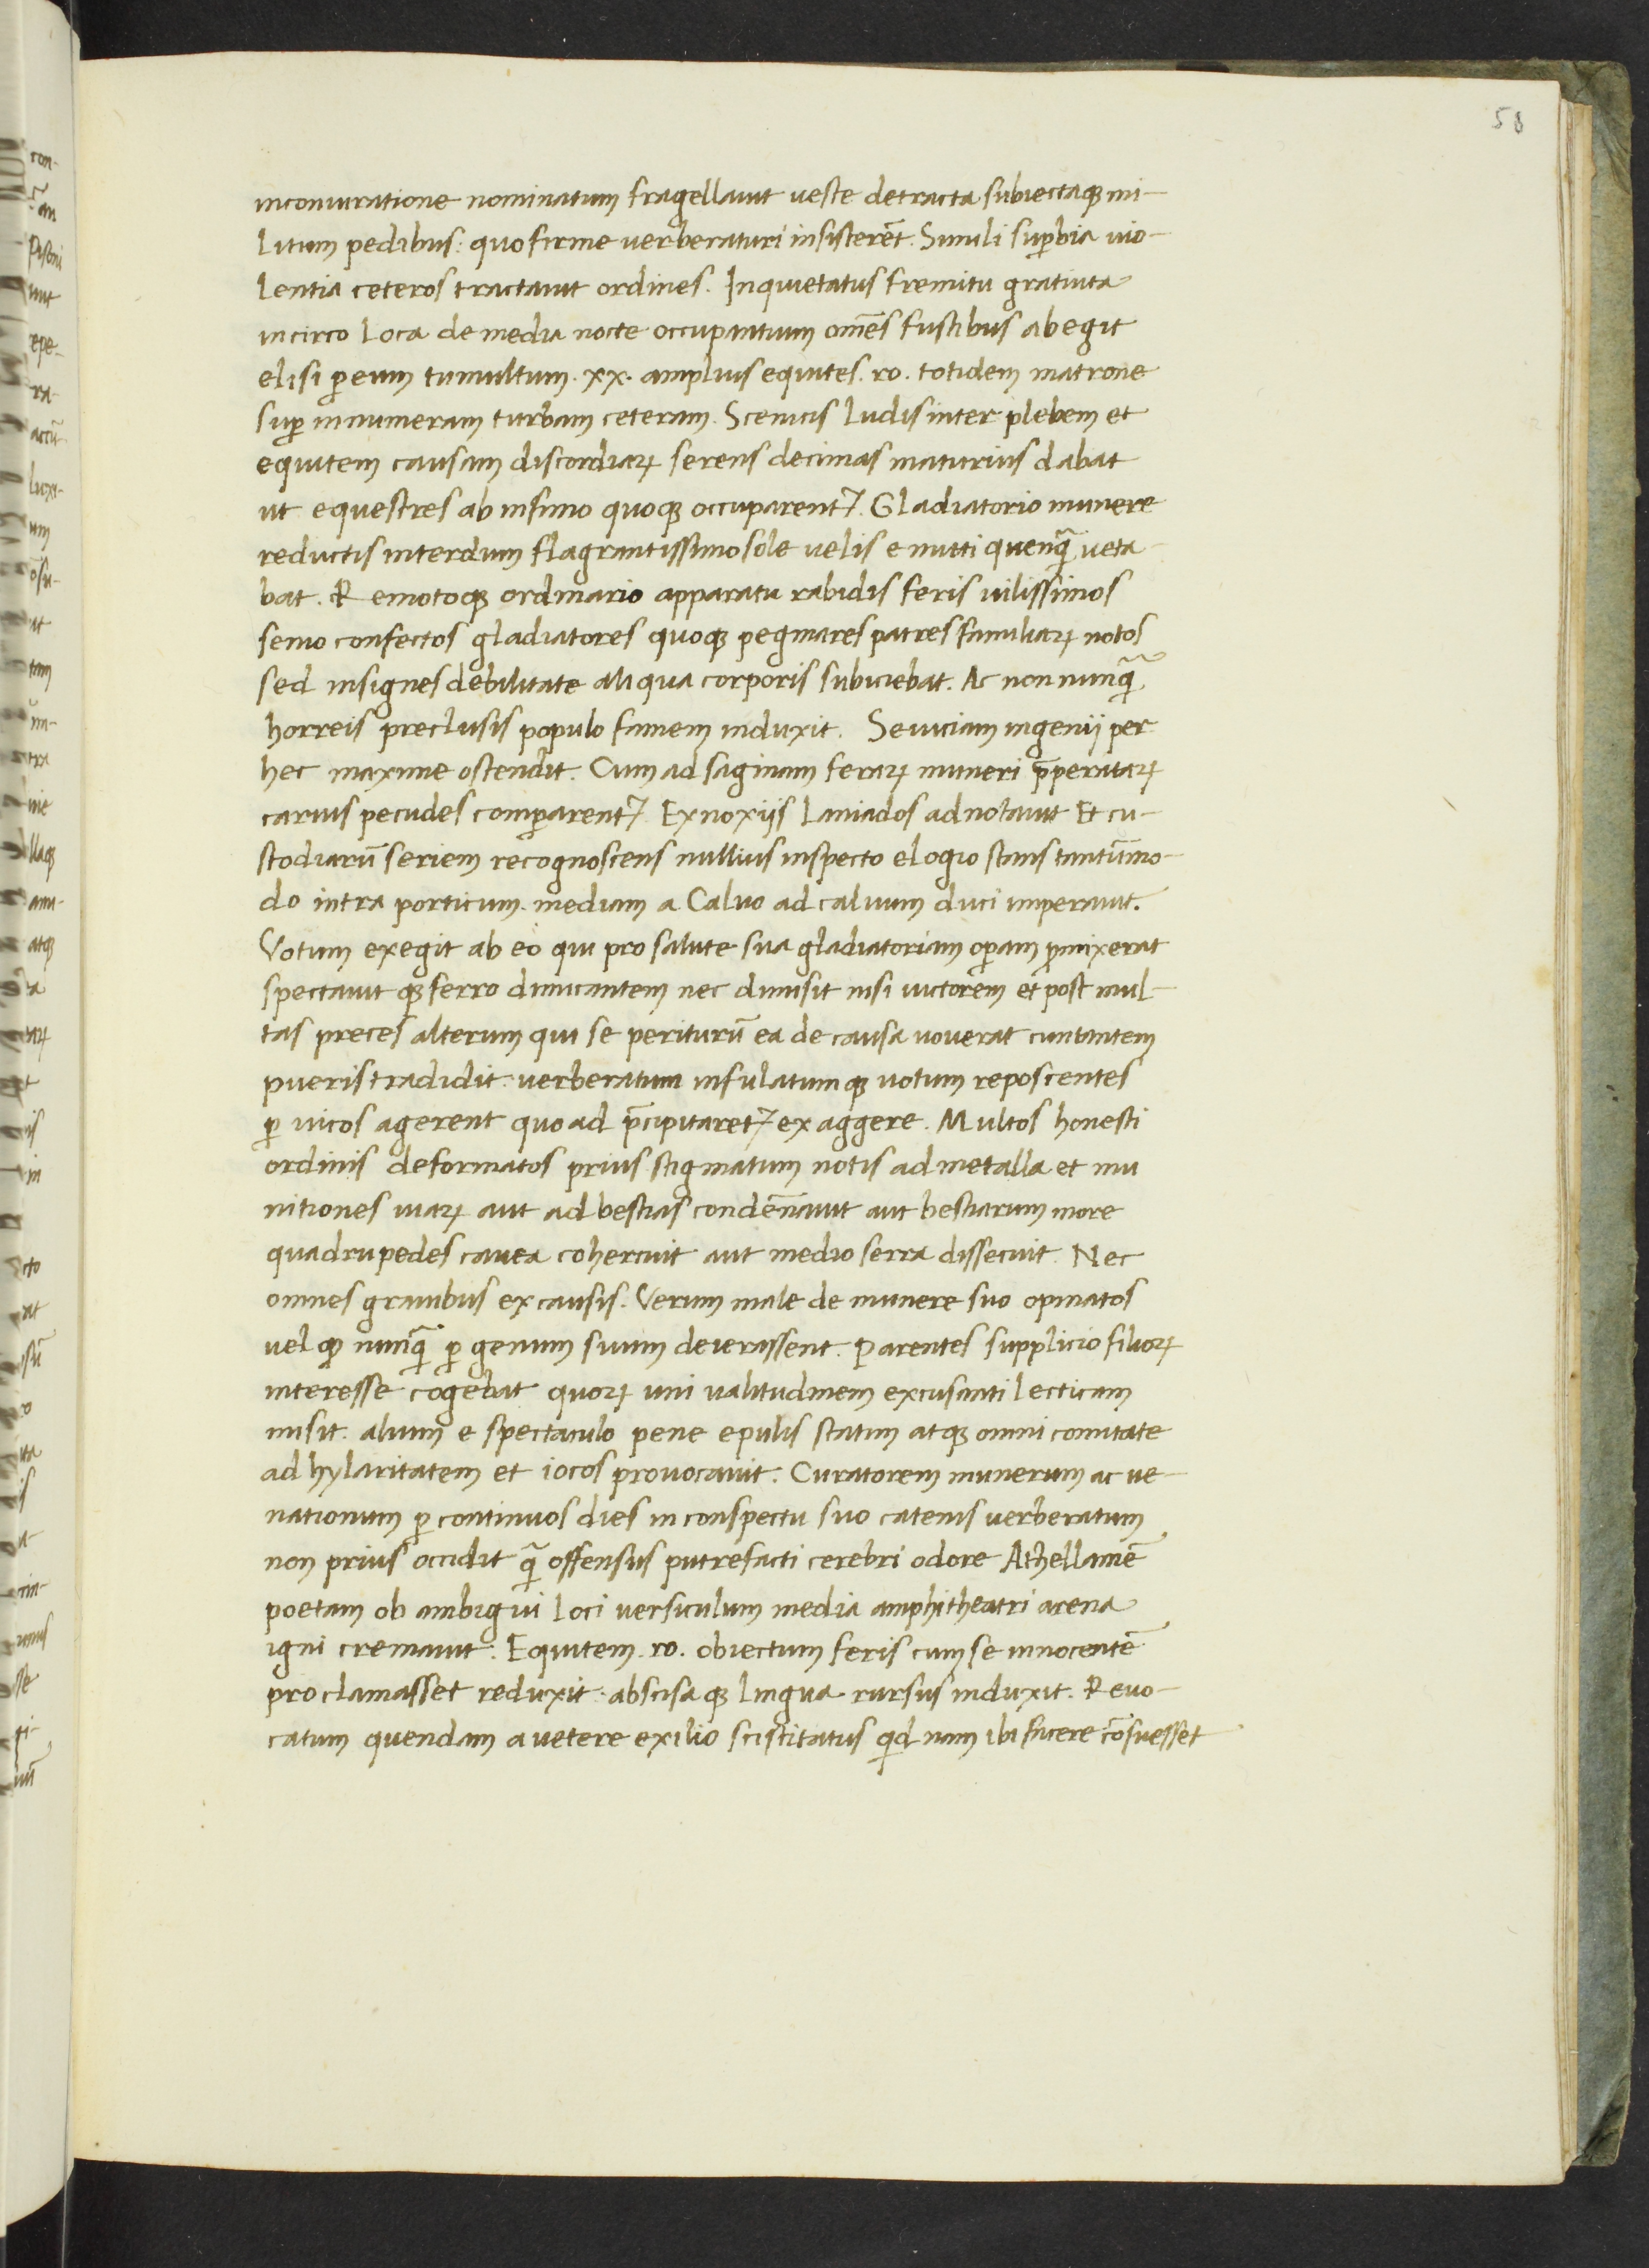 58
inconiuratione nominatum fragellauit ueste detracta subiectaqꝫ mi-
litum pedibus: quo firme uerberaturi insisterēt. Simili suꝑbia uio-
lentia ceteros tractauit ordines. Inquietatus fremitu gratiuita
in circo loca de media nocte occupantium om̄es fustibus abegit
elisi ꝑ eum tumultum. xx. amplius equites. ro. totidem matrone
suꝑ innumeram turbam ceteram. Scenicis ludis inter plebem et
equitem causam discordiaꝝ serens decimas maturius dabat
ut equestres ab infimo quoqꝫ occuparent᷑. Gladiatorio munere
reductis interdum flagrantissimo sole uelis emitti quenq̄ ueta
bat. Remotoqꝫ ordinario apparatu rabidis feris uilissimos
senio confectos gladiatores quoqꝫ pegmares patres familiaꝝ notos
sed insignes debilitate aliqua corporis subiciebat. Ac non nunq̄
horreis preclusis populo famem induxit. Seuiciam ingenij per
hec maxime ostendit. Cum ad saginam feraꝝ muneri p̄peritaꝝ
carius pecudes comꝑarent᷑. Ex noxijs laniados adnotauit Et cu-
stodiarū seriem recognoscens nullius inspecto elogio stans tantūmo-
do intra porticum mediam a Caluo ad caluum duci imperauit.
Votum exegit ab eo qui pro salute sua gladiatoriam oꝑam ꝓmixerat
spectauit qꝫ ferro dimicantem nec dimisit nisi uictorem et post mul-
tas preces alterum qui se periturū ea de causa nouerat cuntantem
pueris tradidit uerberatum infulatumqꝫ uotum reposcentes
ꝑ uicos agerent quo ad p̄cipitaret᷑ ex aggere. Multos honesti
ordinis deformatos prius stigmatum notis ad metalla et mu
nitiones uiaꝝ aut ad bestias condēnauit aut bestiarum more
quadrupedes cauea cohercuit aut medio serra dissecuit. Nec
omnes grauibus ex causis. Verum male de munere suo opinatos
uel qꝫ nunq̄ ꝑ genium suum deierassent. Parentes supplicio filioꝝ
interesse cogebat quoꝝ uni ualitudinem excusanti lecticam
misit. alium e spectaculo pene epulis statim atqꝫ omni comitate
ad hylaritatem et iocos prouocauit. Curatorem munerum ac ue-
nationum ꝑ continuos dies in conspectu suo catenis uerberatum
non prius occidit q̄ offensus putrefacti cerebri odore Athellanīe
poetam ob ambigui loci uersiculum media amphitheatri arena
igni cremauit. Equitem. ro. obiectum feris cum se innocentē
proclamasset reduxit. abscisa qꝫ lingua rursus induxit. Reuo-
catum quendam a uetere exilio sciscitatus qͥd nam ibi facere cōsuesset